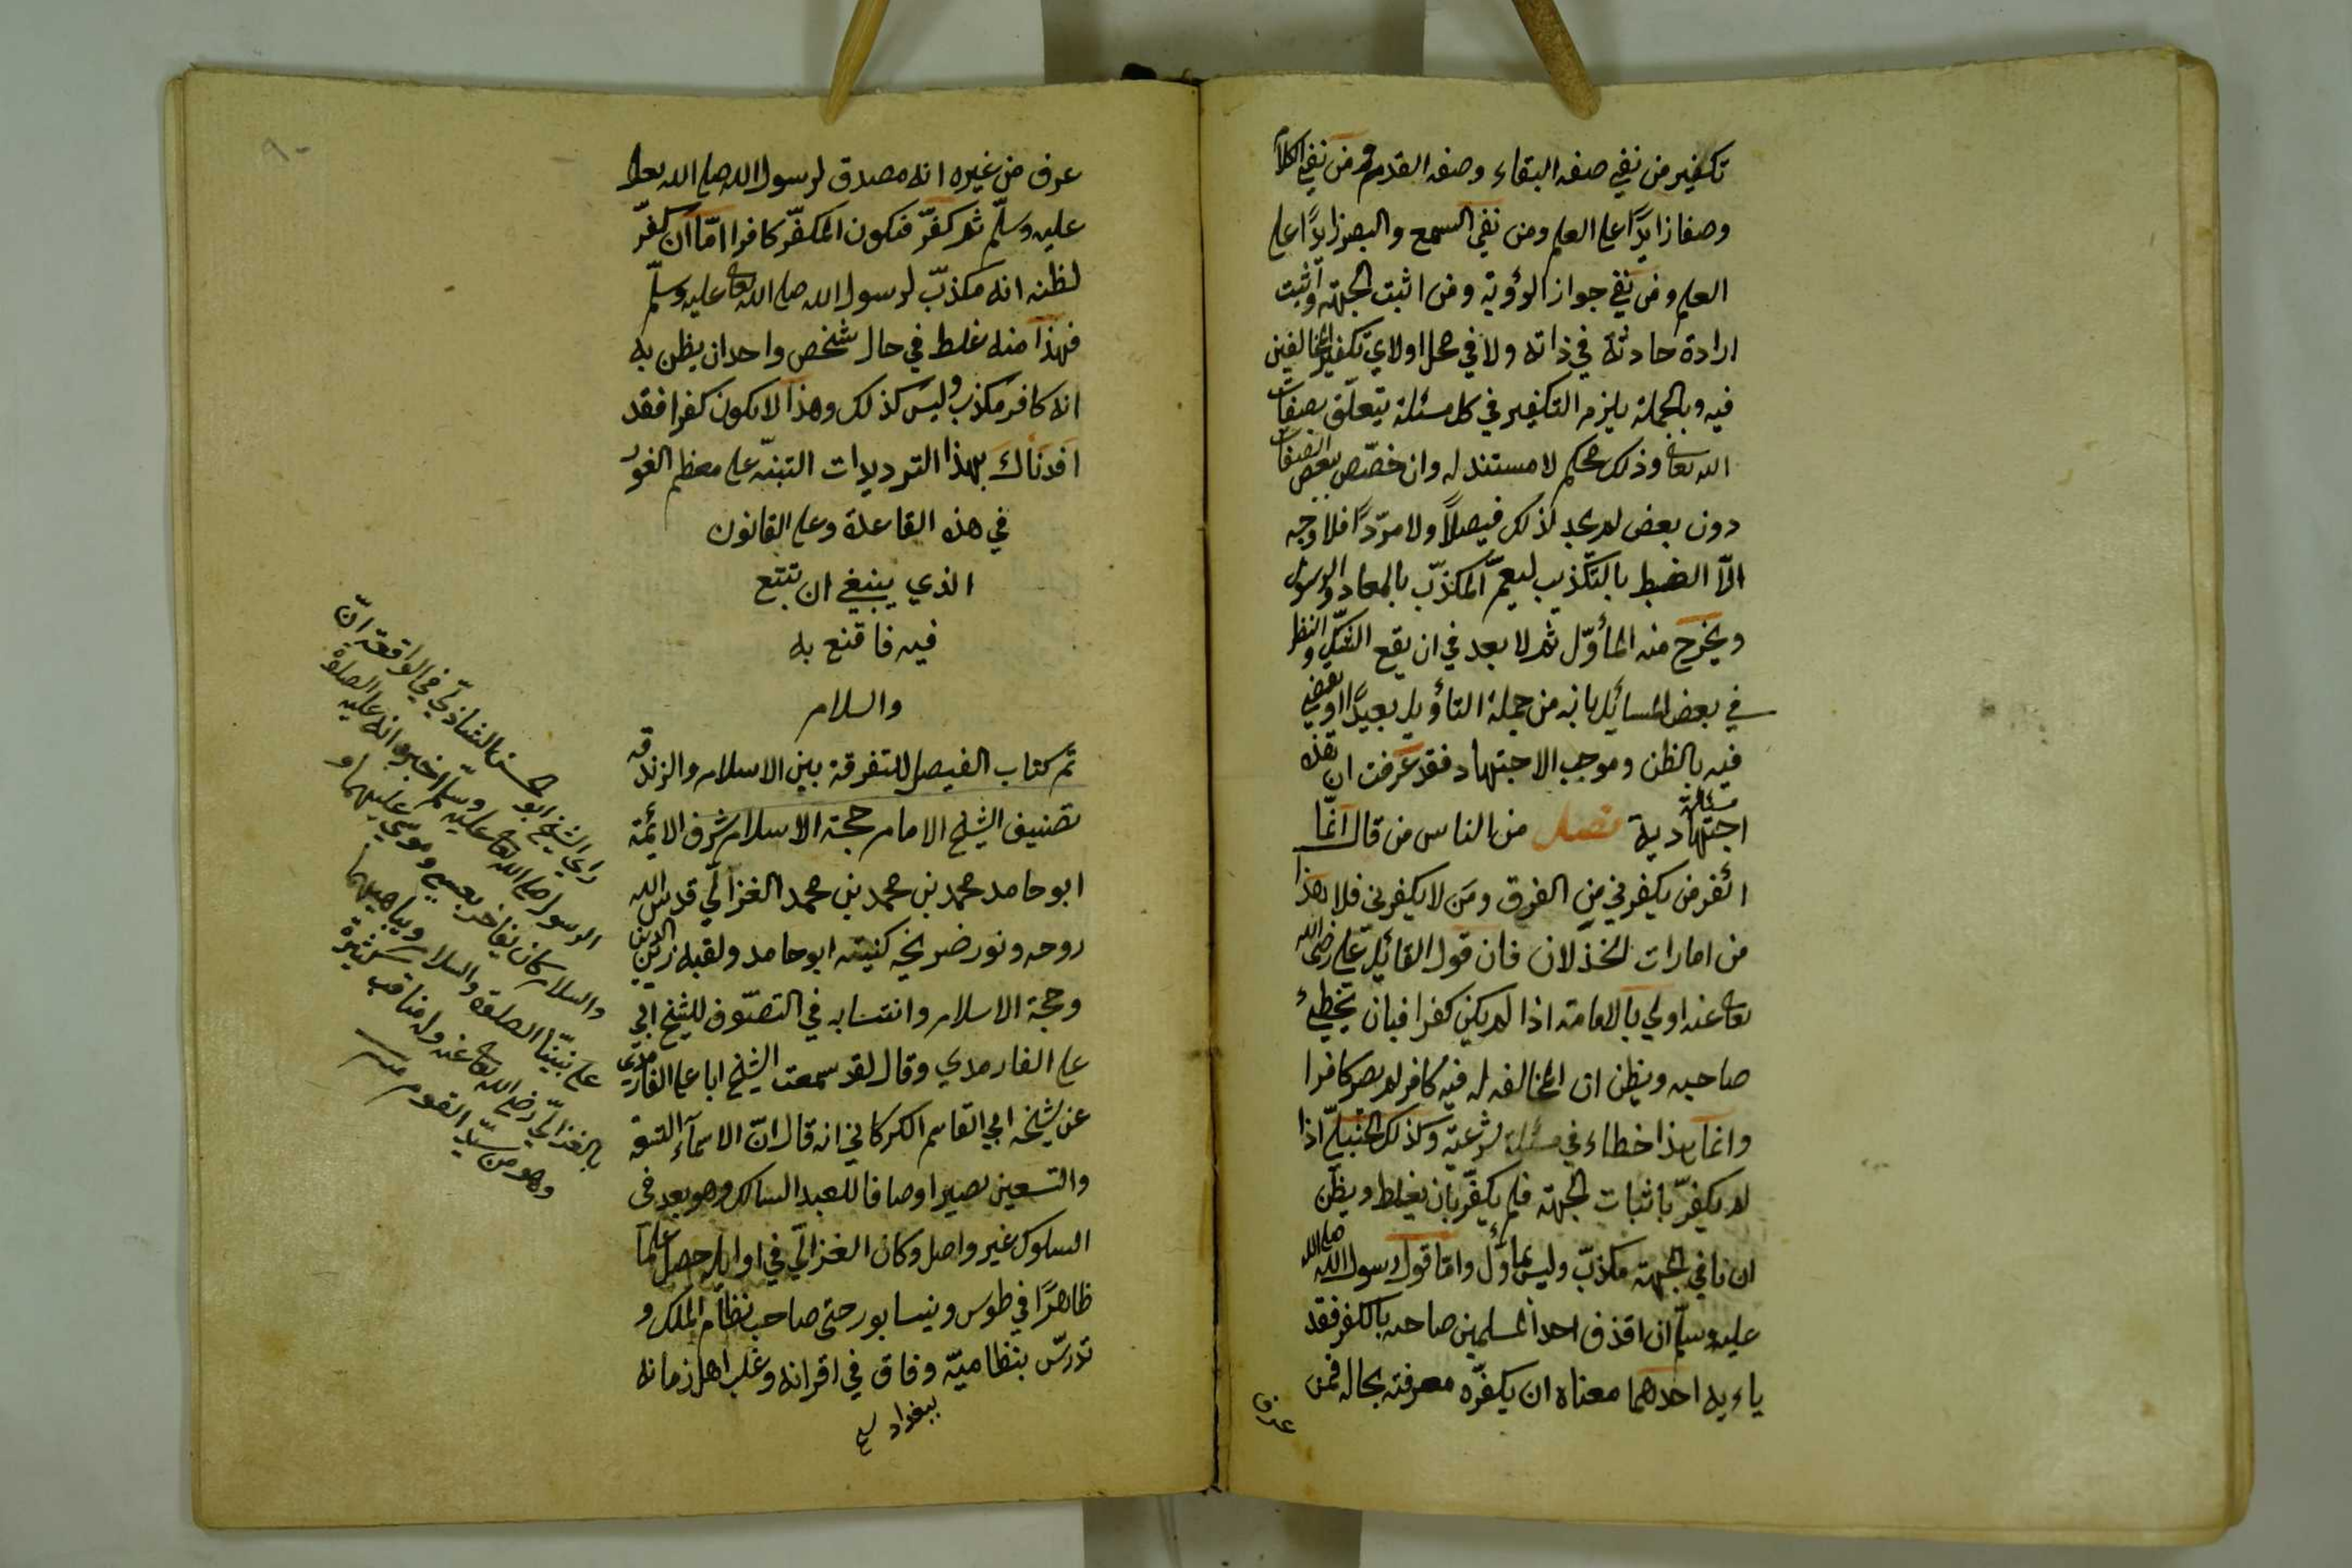 تكفير من نفي صفه البقاء وصفه القدم ومن نفي الكلام
وصفا زايدًا على العلم ومن نفى السمع والبصر زايدًا على
العلم ومن نفي جواز الرؤية ومن اثبت الجهة واثبت
ارادة حادثة في ذاته ولا في محل اولاي تكفير المخالفين
فيه وبالجملة يلزم التكفير في كل مسئلة يتعلّق بصفات
الله تعالى وذلك محكم لا مستند له وان خصّص ببعض الصفات
دون بعض لم يجد لذلك فيصلاً ولا مردًّا فلا وجه
الاّ الضبط بالتكذيب ليعمّ المكذّب بالمعاد والرسول
ويخرج منه المأوّل ثم لا بعد في ان يقع الشكّ والنظر
في بعض المسائل بانه من جملة التأويل بعيدًا او يقضي
فيه بالظن وموجب الاجتهاد فقد عرفت ان هذه
مسئلة
اجتهادية فصل من الناس من قال انمّا
اكفر من يكفرني من الفرق ومَن لا يكفرني فلا هذا
من امارات الخذلان فان قول القائل على رضى الله
تعالى عنه اولي بالامامة اذا لم يكن كفرا فبان يخطئ
صاحبه ويظن ان المخالف له فيه كافر لم يصر كافرا
وانما هذا خطاء في مسئلة شرعية وكذلك الحنبلى اذا
لم يكفّر باثبات الجهة فلم يكفّر بان يغلط ويظن
ان نافي الجهة مكذّب وليس بمأوّل وامّا قول رسول الله صلى الله
عليه وسلّم ان اقذف احد المسلمين صاحبه بالكفر فقد
ياء به احدهما معناه ان يكفّره معرفته بحاله فمن
عرف
عرف من غيره انه مصدق لرسول الله صلى الله تعالى
عليه وسلّم ثم كفّر فيكون المكفّر كافرا امّا ان كفّر
لظنه انه مكذّب لرسول الله صلى الله تعالى عليه وسلّم
فهذا منه غلط في حال شخص واحد ان يظن به
انه كافر مكذب وليس كذلك وهذا لا يكون كفرا فقد
افدناك بهذا الترديدات التنبّه على معظم الغور
في هذه القاعدة وعلى القانون
الذي ينبغي ان تتبع
فيه فاقنع به
والسلام
تم كتاب الفيصل للتفرقة بين الاسلام والزندقه
تصنيف الشيخ الامام حجة الاسلام شرف الائمة
ابو حامد محمد بن محمد بن محمد الغزالّي قدس الله
روحه ونور ضريحه كنيته ابو حامد ولقبه زين الدين
وحجة الاسلام وانتسابه في التصوّف للشيخ ابي
على الفارمدي وقال لقد سمعت الشيخ ابا على الفارمدي
عن شيخه ابي القاسم الكركاني انه قال انّ الاسمآء التسعة
والتسعين يصير اوصافا للعبد السالك وهو بعد في
السلوك غير واصل وكان الغزالّي في اوايله حصل علمآ
ظاهرًا في طوس ونيسابور حتى صاحب نظام الملك و
تدرّس بنظاميّة وفاق في اقرانه وغلب اهل زمانه
ببغداد
راي الشيخ ابو الحسن الشاذليّ في الواقعة انّ
الرسول صلى الله تعالى عليه وسلّم اخبر وانه عليه الصلوة
والسلام كان يفاخر بعيسي وموسي عليهما و
على نبيّنا الصلوة والسلام ويباهيهما
بالغزاليّ رضى الله تعالى عنه وله مناقب كثيرة
وهو من سيّد القوم
٩٠